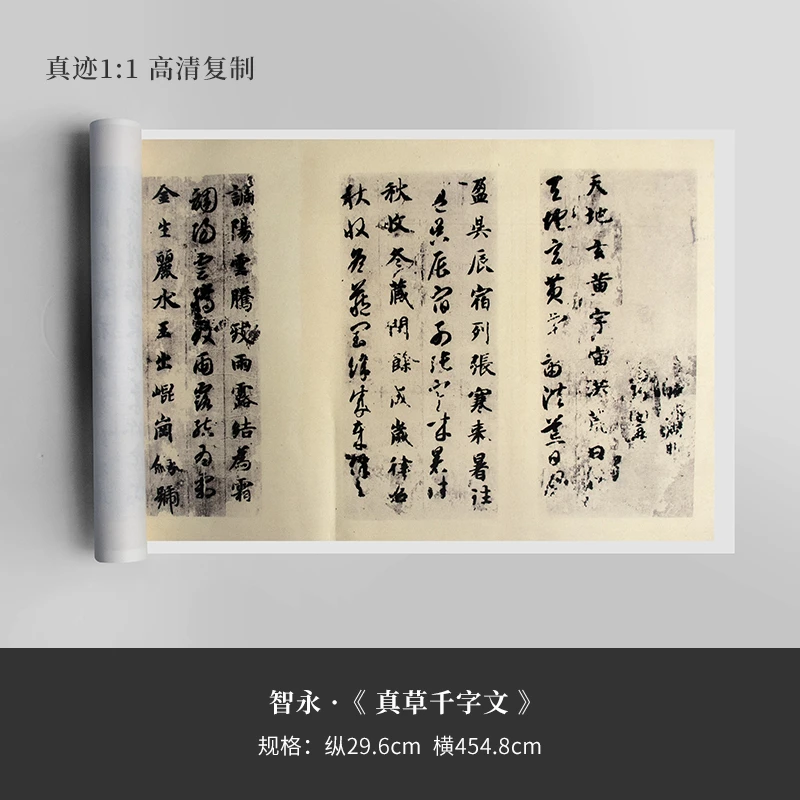 真迹1:1 高清复制
天地玄黄宇宙洪荒日
天地玄黄宇宙洪荒日月
盈昃辰宿列張寒来暑往
盈昃辰宿列張寒来暑往
秋收冬藏閏餘成歲律呂
秋收冬藏閏餘成歲律呂
調陽雲騰致雨露結為霜
調陽雲騰致雨露結為霜
金生麗水玉出崐崗劒號
智永·《真草千字文》
规格：纵29.6cm 横454.8cm